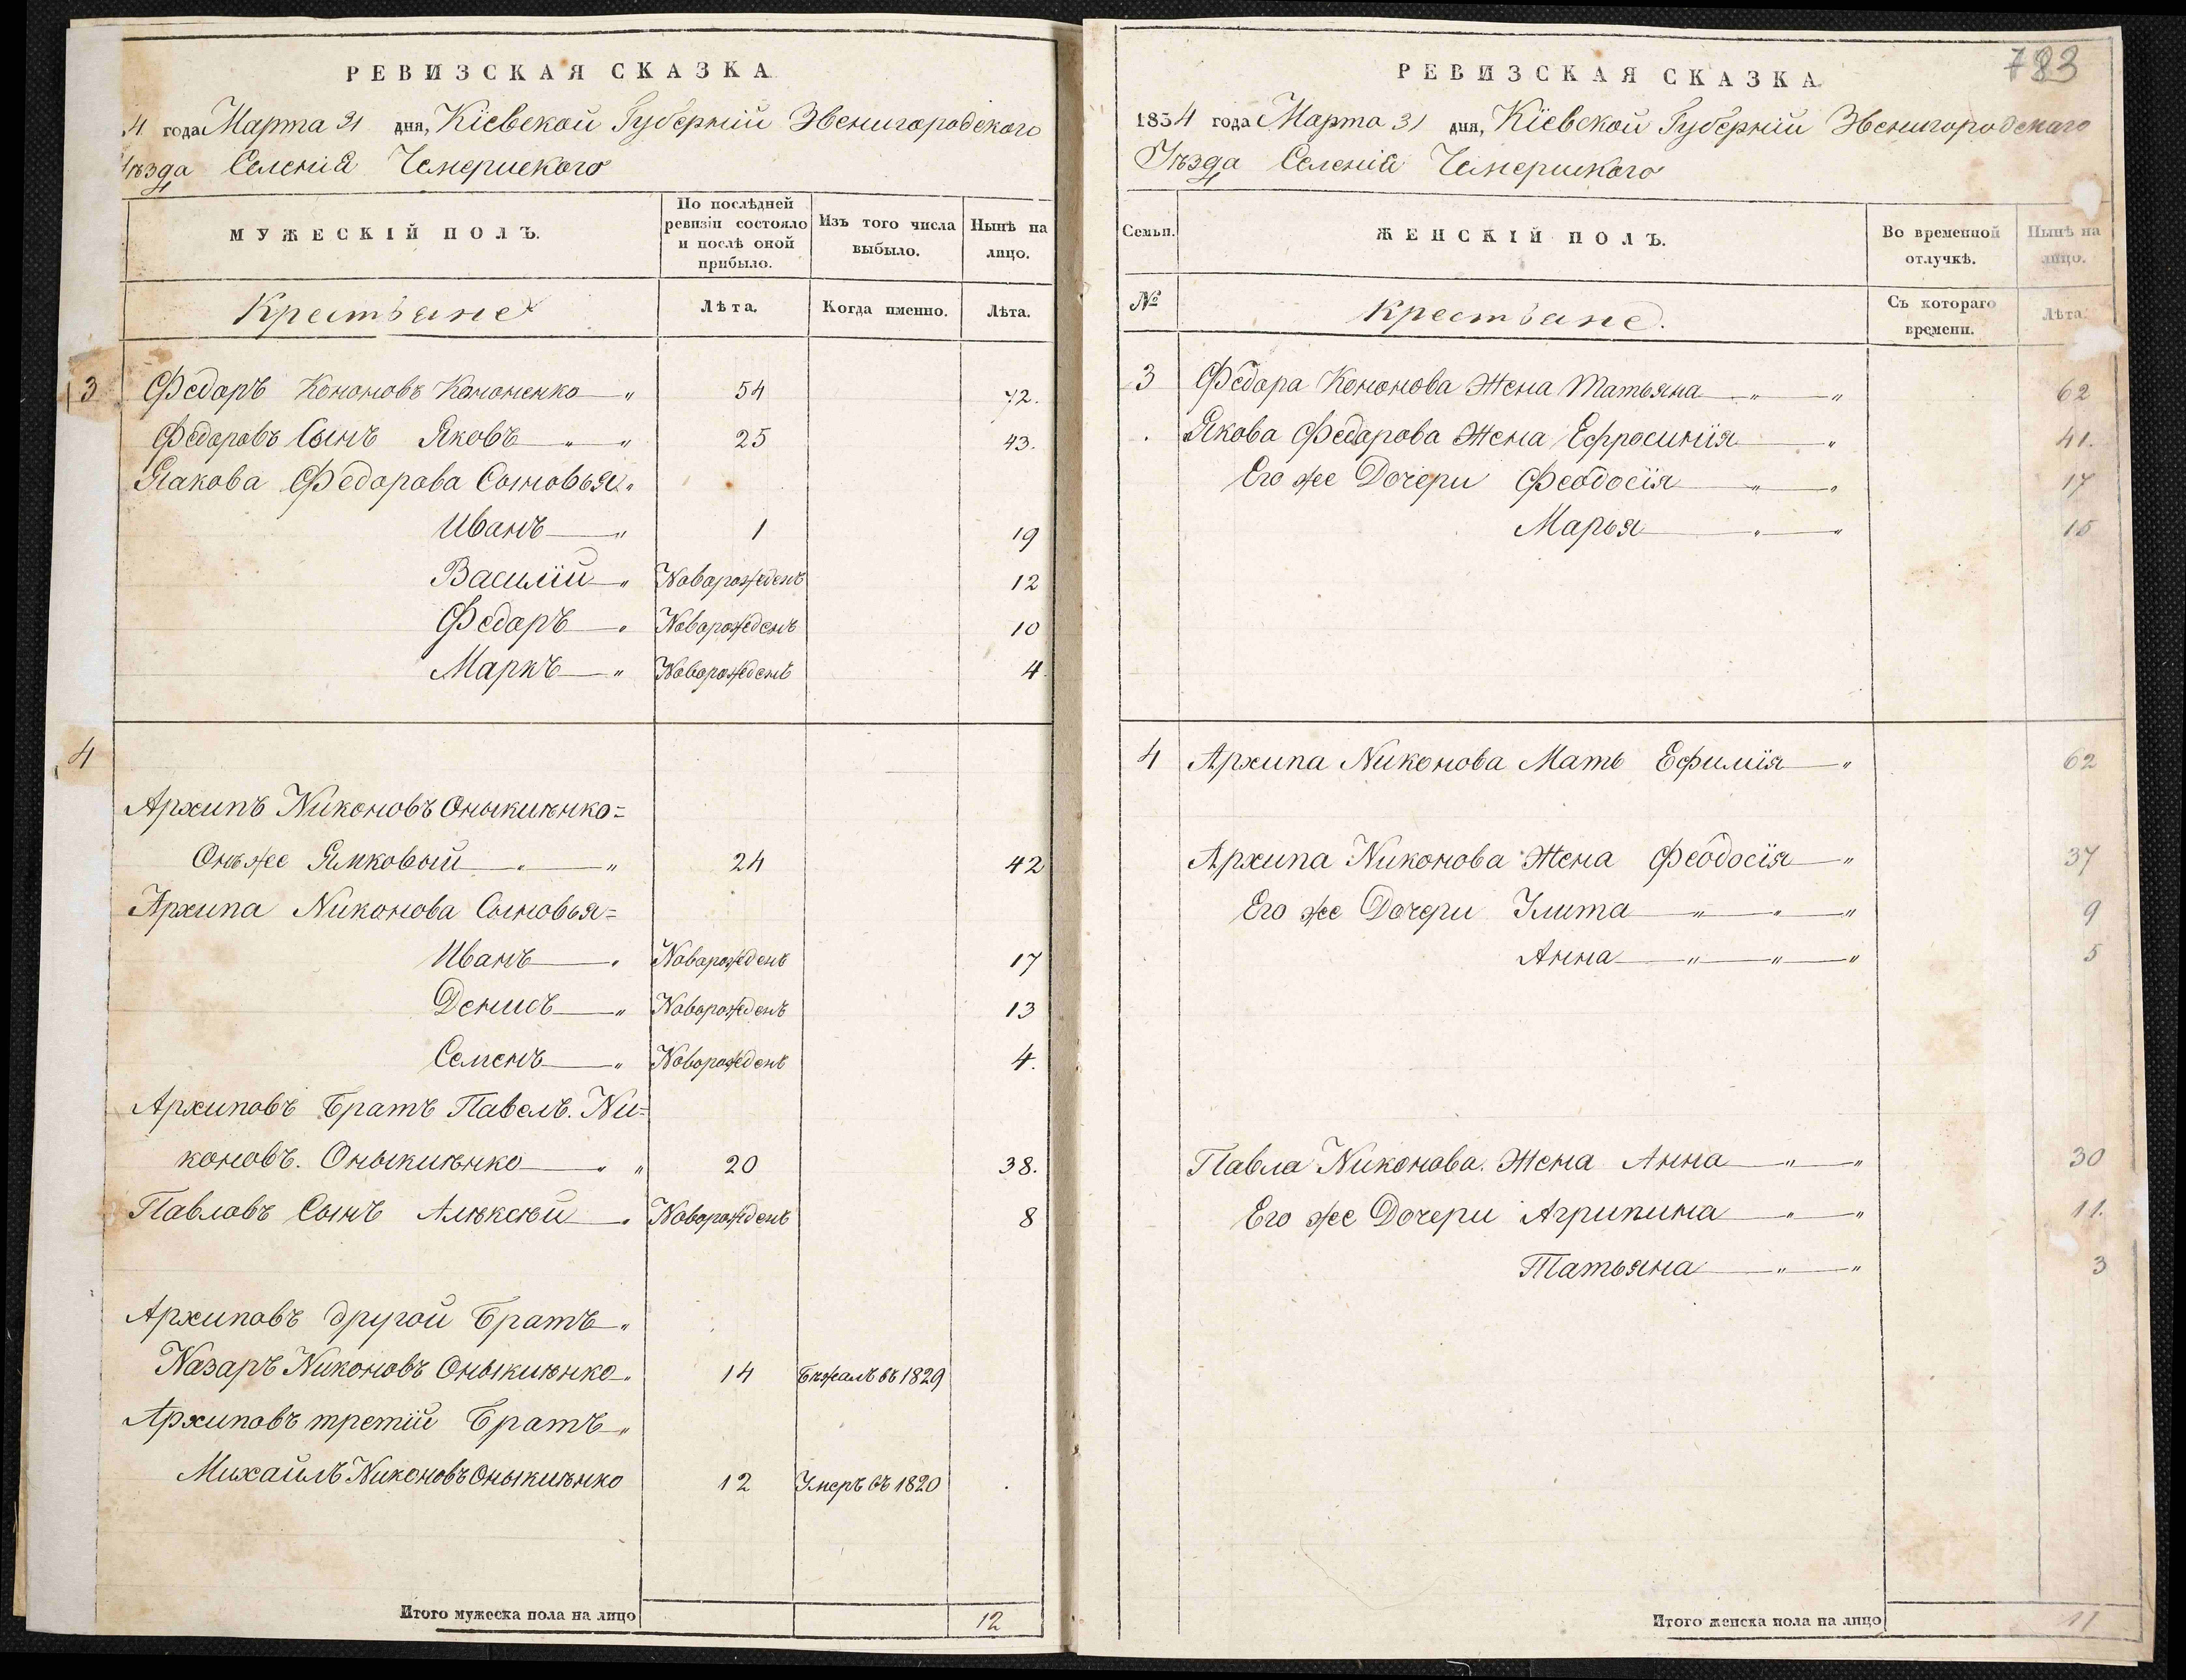 РЕВИЗСКАЯ СКАЗКА
4 года Марта 31 дня, Кіевской Губерніи Звенигородскаго
Уѣзда Селенія Чемерискаго
МУЖЕСКІЙ ПОЛЪ.
По послѣдней ревизіи состояло и послѣ оной прибыло.
Изъ того числа выбыло.
Нынѣ на лицо.
Крестьяне
Лѣта.
Когда именно.
Лѣта.
3 Федоръ Кононовъ Кононенко 54 72.
Федоровъ Сынъ Яковъ 25 43.
Якова Федорова Сыновья
Иванъ 1 19
Василій Новорожденъ 12
Федоръ Новорожденъ 10
Маркъ Новорожденъ 4
4
Архипъ Никоновъ Оныкиѣнко=
Онъ же Ямковый 24 42
Архипа Никонова Сыновья=
Иванъ Новорожденъ 17
Денисъ Новорожденъ 13
Семенъ Новорожденъ 4.
Архиповъ Братъ Павелъ. Ни=
коновъ. Оныкиѣнко 20 38.
Павловъ Сынъ Алѣксѣй Новорожденъ 8
Архиповъ другой Братъ
Назаръ Никоновъ Оныкиѣнко 14 Бѣжалъ въ 1829
Архиповъ третій Братъ
Михайлъ Никоновъ Оныкиѣнко 12 Умеръ въ 1820
Итого мужеска пола на лицо 12
783
РЕВИЗСКАЯ СКАЗКА
1834 года Марта 31 дня, Кіевской Губерніи Звенигородскаго
Уѣзда Селенія Чемерискаго
Семьи.
ЖЕНСКІЙ ПОЛЪ.
Во временной отлучкѣ.
Нынѣ на лицо.
№
Крестьяне.
Съ котораго времени.
Лѣта.
3 Федора Кононова Жена Татьяна 62
Якова Федорова Жена Ефросинія 41.
Его же Дочери Феодосія 17
Марья 15
4 Архипа Никонова Мать Ефимія 62
Архипа Никонова Жена Феодосія 37
Его же Дочери Улита 9
Анна 5
Павла Никонова. Жена Анна 30
Его же Дочери Агрипина 11.
Татьяна 3
Итого женска пола на лицо 11